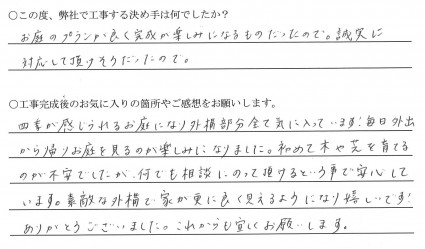 ○この度、弊社で工事する決め手は何でしたか？
お庭のプランが良く完成が楽しみになるものだったので。誠実に
対応して頂けそうだったので。
○工事完成後のお気に入りの箇所やご感想をお願いします。
四季が感じられるお庭になり外構部分全て気に入っています!毎日外出
から帰りお庭を見るのが楽しみになりました。初めて木や芝を育てる
のが不安でしたが、何でも相談にのって頂けるという事で安心して
います。素敵な外構で家が更に良く見えるようになり嬉しいです!
ありがとうございました。これからも宜しくお願いします。